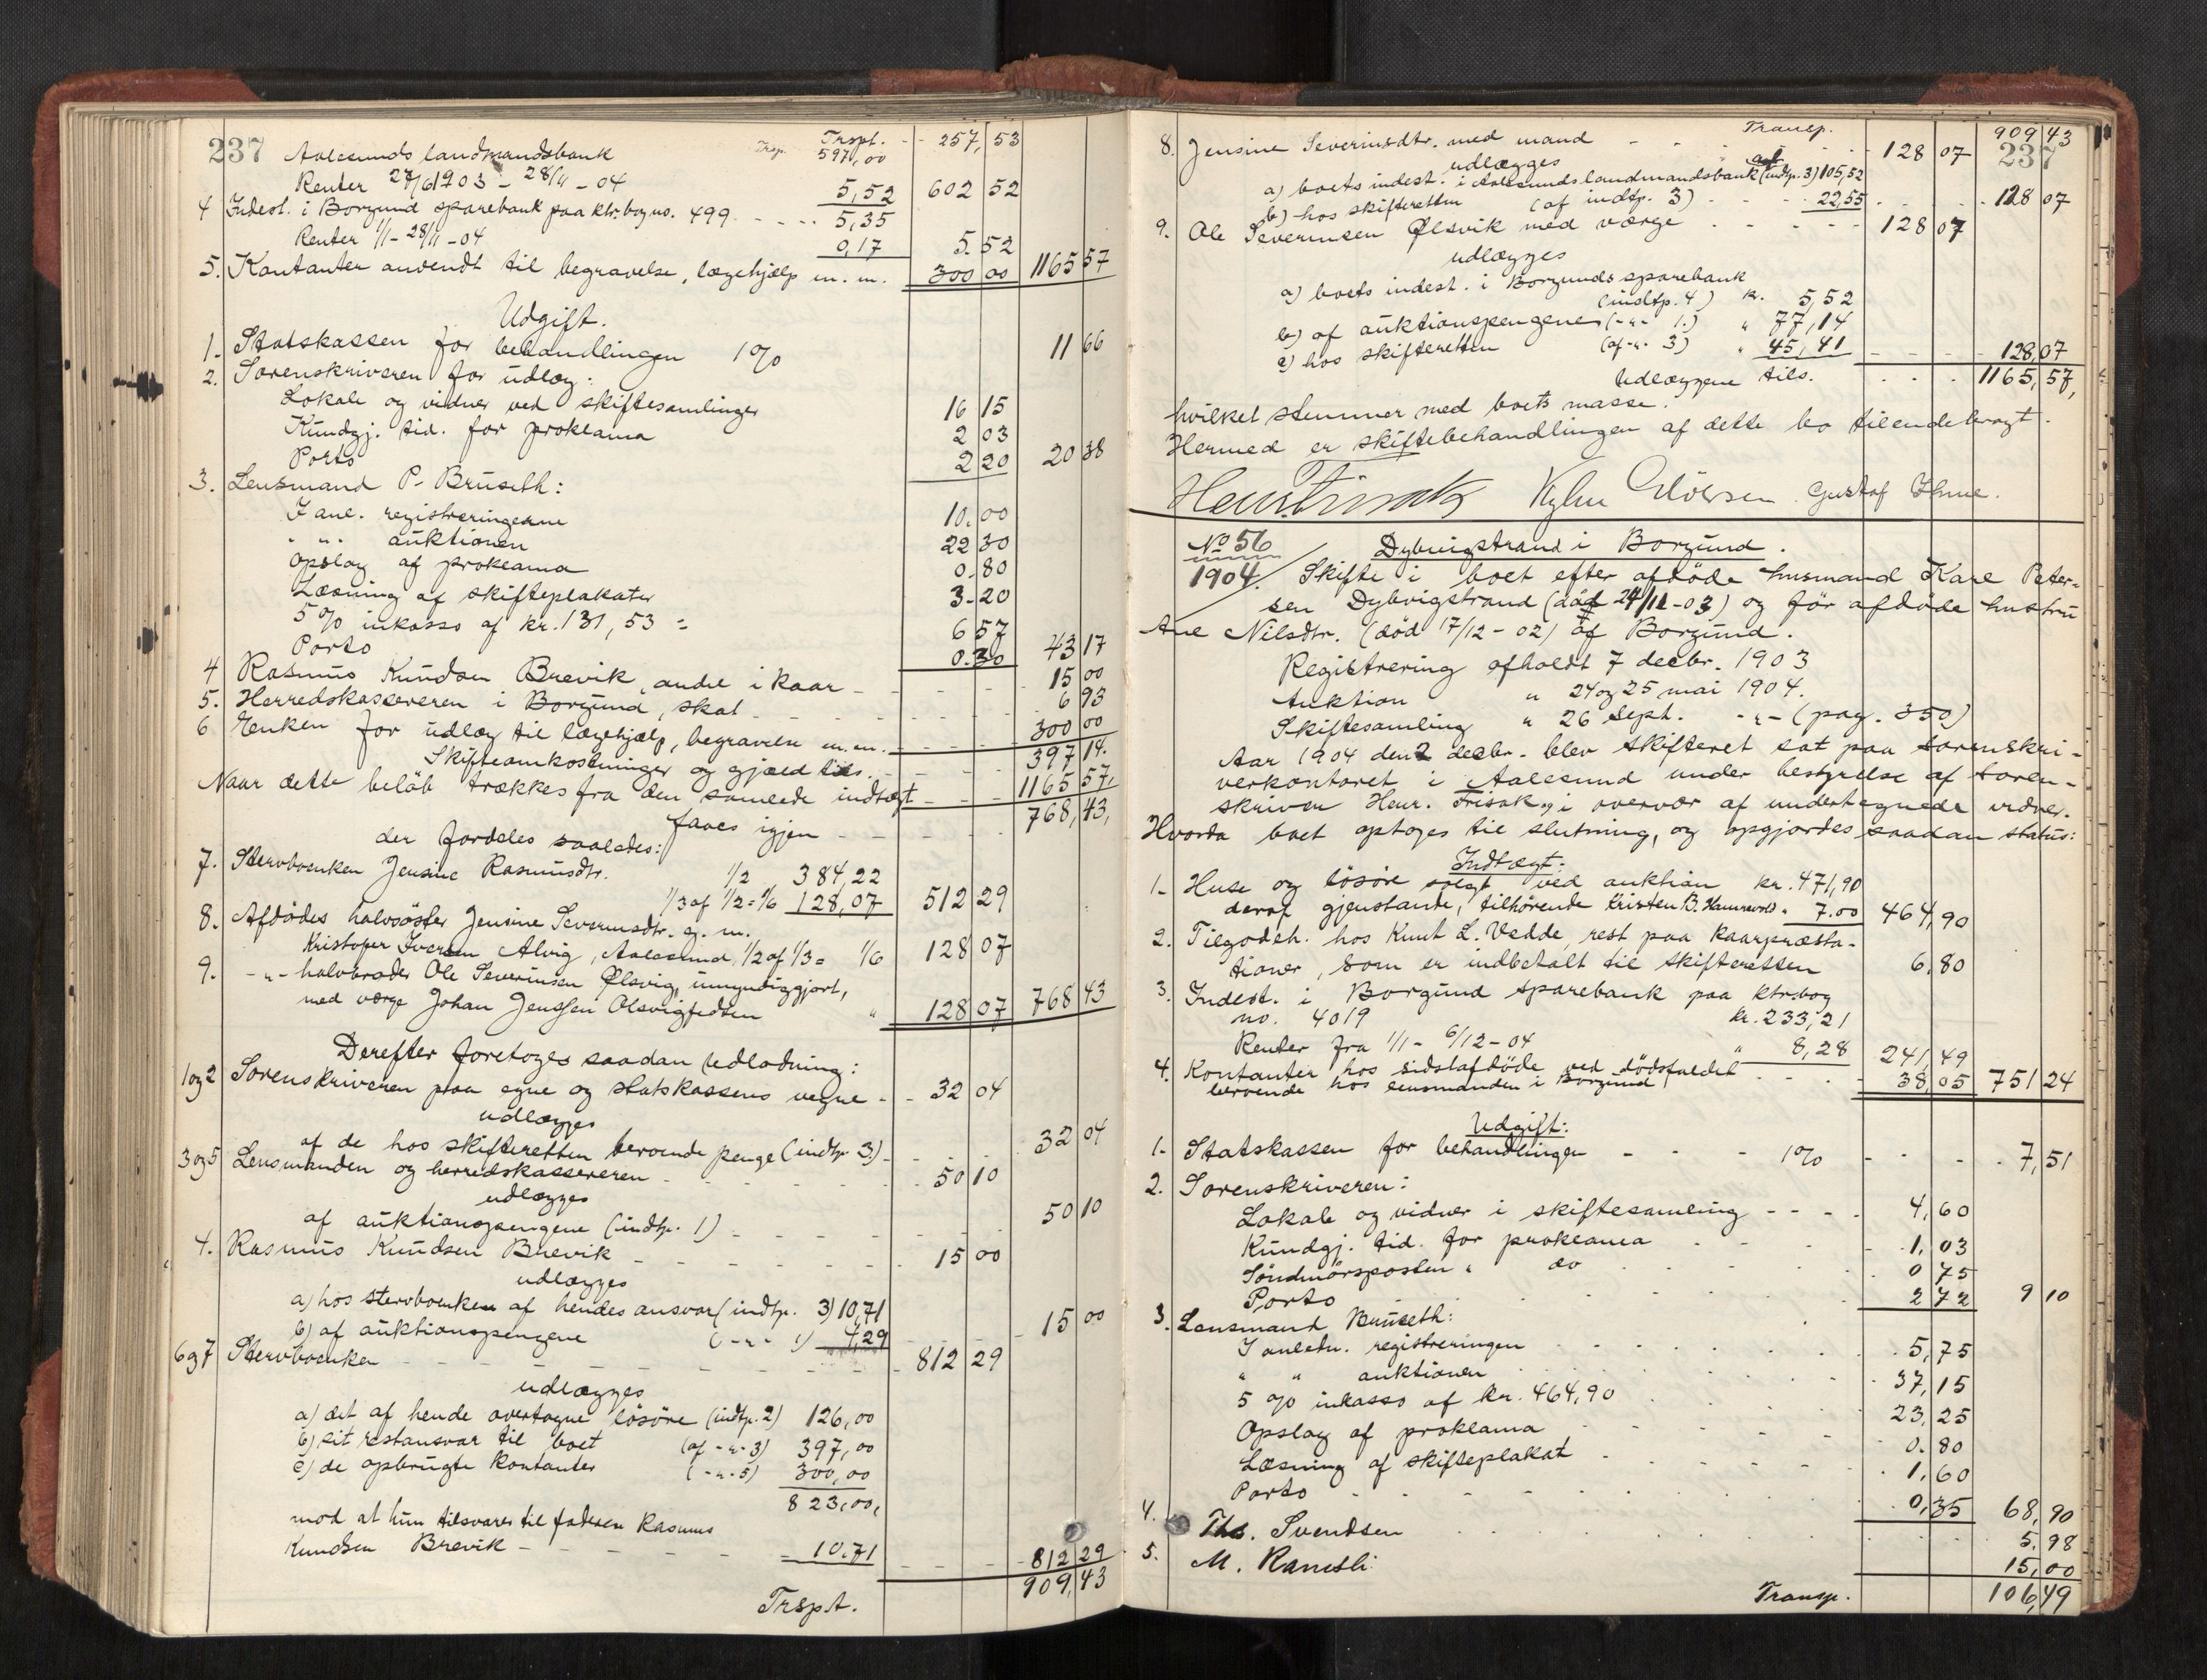 237 Trspt. 257,53
Aalesunds landmandsbank 597,00
Renter 27/6 1903 - 28/11 - 04 5,52 602 52
4 Indest. i Borgund sparebank paa ktr.bog no. 499 5,35
Renter 1/1 - 28/11 - 04 0,17 5.52
5. Kontanter anvendt til begravelse, lægehjælp m.m. 300 00 1165 57
Udgift.
1. Statskassen for behandlingen 1% 11 66
2. Sorenskriveren for udlæg:
Lokale og vidner ved skiftesamlinger 16 15
Kundgj. tid. for proklama 2 03
Porto 2 20 20 38
3. Lensmand P. Brüseth:
I anl. registreringerne 10.00
" " auktionen 22 30
Opslag af proklama 0.80
Læsning af skifteplakater 3.20
5% inkasso af kr. 131,53 = 6 57
Porto 0.30 43 17
4 Rasmus Knudsen Brevik, andel i kaar 15 00
5. Herredskassereren i Borgund, skat 6 93
6 Enken for udlæg til lægehjælp, begravelse m.m. 300 00
Skifteomkostninger og gjæld tils. 397 14.
Naar dette beløb trækkes fra den samlede indtægt 1165 57,
faaes igjen 768,43,
der fordeles saaledes:
7. Stervboenken Jensine Rasmusdtr. 1/2 384,22
1/3 af 1/2 = 1/6 128,07 512 29
8. Afdødes halvsøster Jensine Severinsdtr. g. m.
Kristofer Iversen Alvig, Aalesund, 1/2 af 1/3 = 1/6 128 07
9. -"- halvbroder Ole Severinsen Ølsvig, umyndiggjort,
med værge Johan Jenssen Olsvigfedten " 128 07 768 43
Derefter foretoges saadan udlodning:
1 og 2 Sorenskriveren paa egne og statskassens vegne - - 32 04
udlægges
af de hos skifteretten beroende penge (indtp. 3) 32 04
3 og 5 Lensmanden og herredskassereren 50 10
udlægges
af auktionspengene (indtp. 1) 50 10
4. Rasmus Knudsen Brevik 15 00
udlægges
a) hos stervboenken af hendes ansvar (indtp. 3) 10,71
b) af auktionspengene (-"- 1) 4,29 15 00
6 og 7 Stervboenken 812 29
udlægges
a) det af hende overtagne løsøre (indtp. 2) 126,00
b) sit restansvar til boet (af -"- 3) 397,00
c) de opbrugte kontanter (-"- 5) 300,00
823,00,
mod at hun tilsvarer til faderen Rasmus
Knudsen Brevik - 10.71 812 29
Trspt. 909,43
Transp. 909 43
237
8. Jensine Severinsdtr. med mand 128 07
udlægges
a) boets indest. i Aalesunds landmandsbank (af indtp. 3) 105,52
b) hos skifteretten (af indtp. 3) 22,55 128 07
9. Ole Severinsen Ølsvik med værge 128 07
udlægges
a) boets indest. i Borgunds sparebank
(indtp. 4) kr. 5,52
b) af auktionspengene (-"- 1.) " 77,14
c) hos skifteretten (af -"- 3) " 45,41 128,07
Udlæggene tils. 1165,57,
hvilket stemmer med boets masse.
Hermed er skiftebehandlingen af dette bo tilendebragt.
Henr. Frisak Gustaf
No 56 Dybvigstrand i Borgund.
1904. Skifte i boet efter afdøde husmand Karl Peter-
sen Dybvigstrand (død 24/11-03) og før afdøde hustru
Ane Nilsdtr. (død 17/12 - 02) af Borgund.
Registrering afholdt 7 decbr. 1903
Auktion " 24 og 25 mai 1904.
Skiftesamling " 26 Sept. -"- (pag. 350)
Aar 1904 den 2 decbr. blev skifteret sat paa sorenskri-
verkontoret i Aalesund under bestyrelse af soren-
skriver Henr. Frisak, i overvær af undertegnede vidner.
Hvorda boet optoges til slutning, og opgjordes saadan status:
Indtægt:
1. Huse og løsøre solgt ved auktion kr. 471,90
deraf gjenstande, tilhørende Kristen B. Humrevold " 7.00 464,90
2. Tilgodeh. hos Knut L. Vedde, rest paa kaarpræsta-
tioner, som er indbetalt til skifteretten 6,80
3. Indest. i Borgund sparebank paa ktr.bog
no. 4019 kr. 233,21
Renter fra 1/1 - 6/12 - 04 " 8,28 241,49
4. Kontanter hos sidstafdøde ved dødsfaldet
beroende hos lensmanden i Borgund 38,05 751 24
Udgift:
1. Statskassen for behandlingen 1% 7,51
2. Sorenskriveren:
Lokale og vidner i skiftesamling 4,60
Kundgj. tid. for proklama 1,03
Søndmørsposten " do 0 75
Porto 2 72 9 10
3. Lensmand Brüseth:
I anledn. registreringen 5,75
" " auktionen 37,15
5% inkasso af kr. 464,90 23,25
Opslag af proklama 0.80
Læsning af skifteplakat 1,60
Porto 0,35 68,90
4. Ths. Svendsen 5.98
5. M. Ranesli 15,00
Transp. 106,49